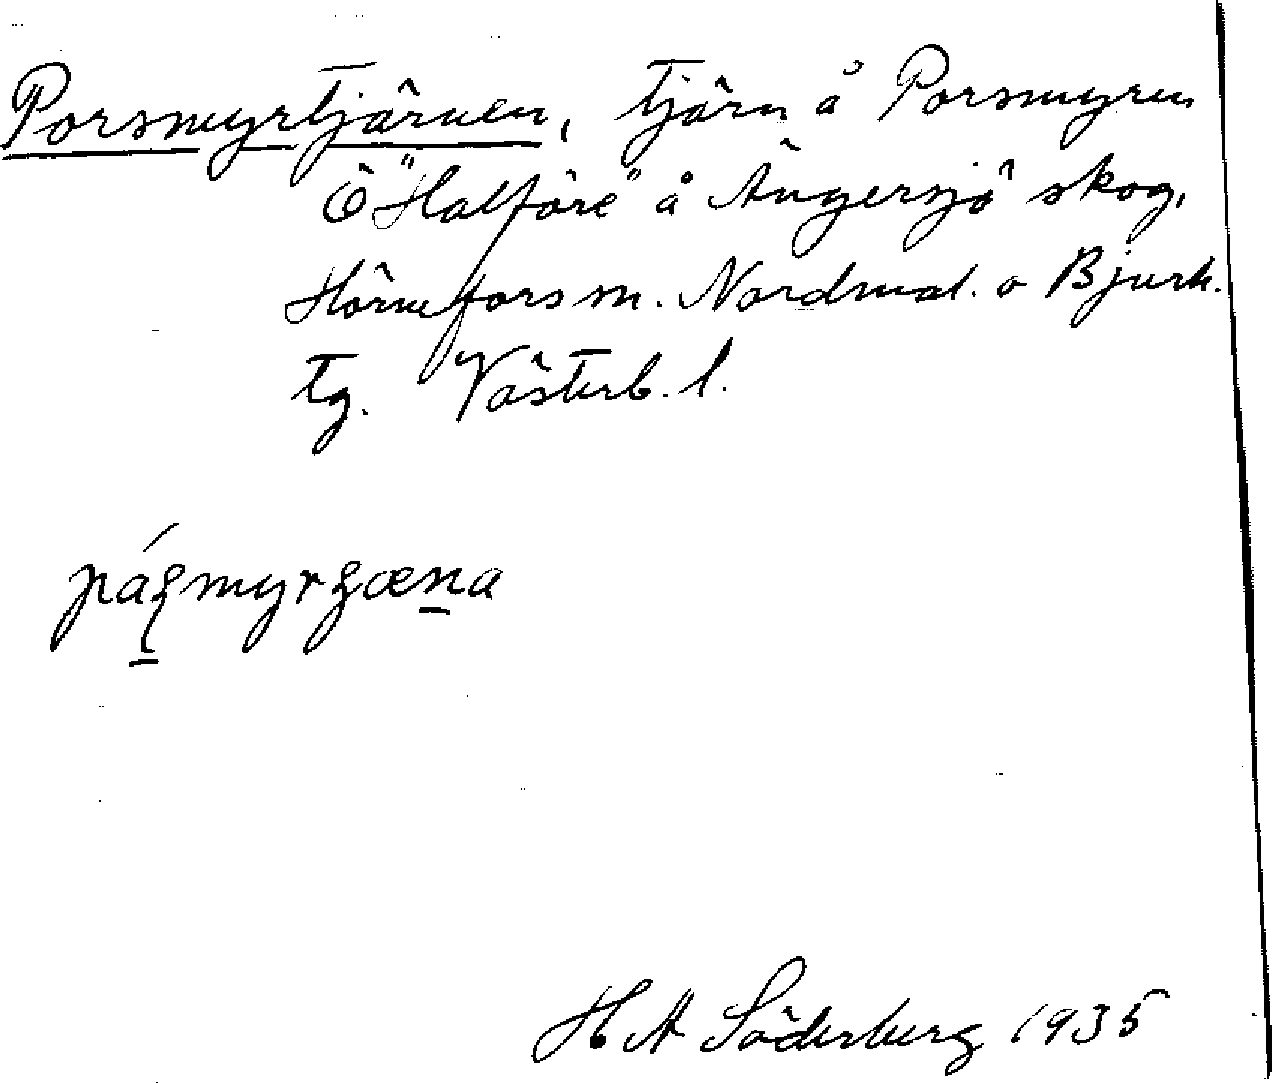 Porsmyrtjärnen, tjärn å Porsmyren
Ö "Halföre" å Ängersjö skog,
Hörnefors sn. Nordmal. o Bjurh.
tg. Västerb. l.
H A Söderberg 1935